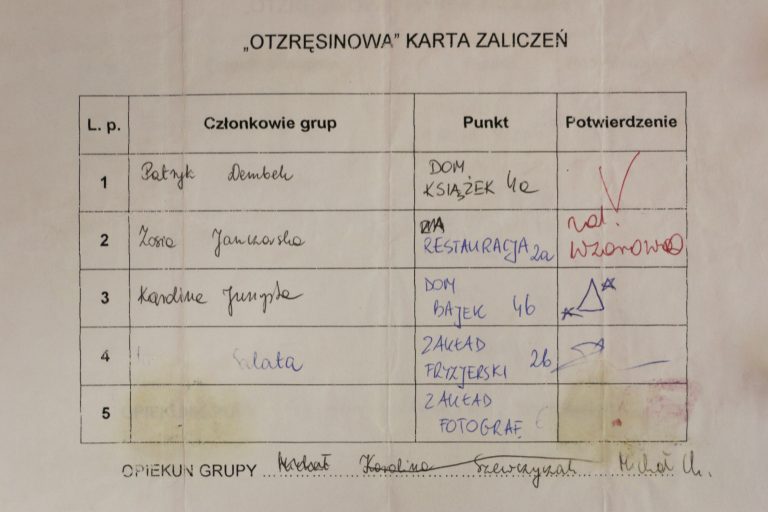 „OTZRĘSINOWA” KARTA ZALICZEŃ
L. p. Członkowie grup Punkt Potwierdzenie
1 Patryk Dembek DOM KSIĄŻEK 4a
2 Zosia Janczarska RESTAURACJA 2a zal. wzorowo
3 Karolina DOM BAJEK 4b
4 Salata ZAKŁAD FRYZJERSKI 2b
5 ZAKŁAD FOTOGRAF.
OPIEKUN GRUPY Karolina Szewczyzak Michał Ch.